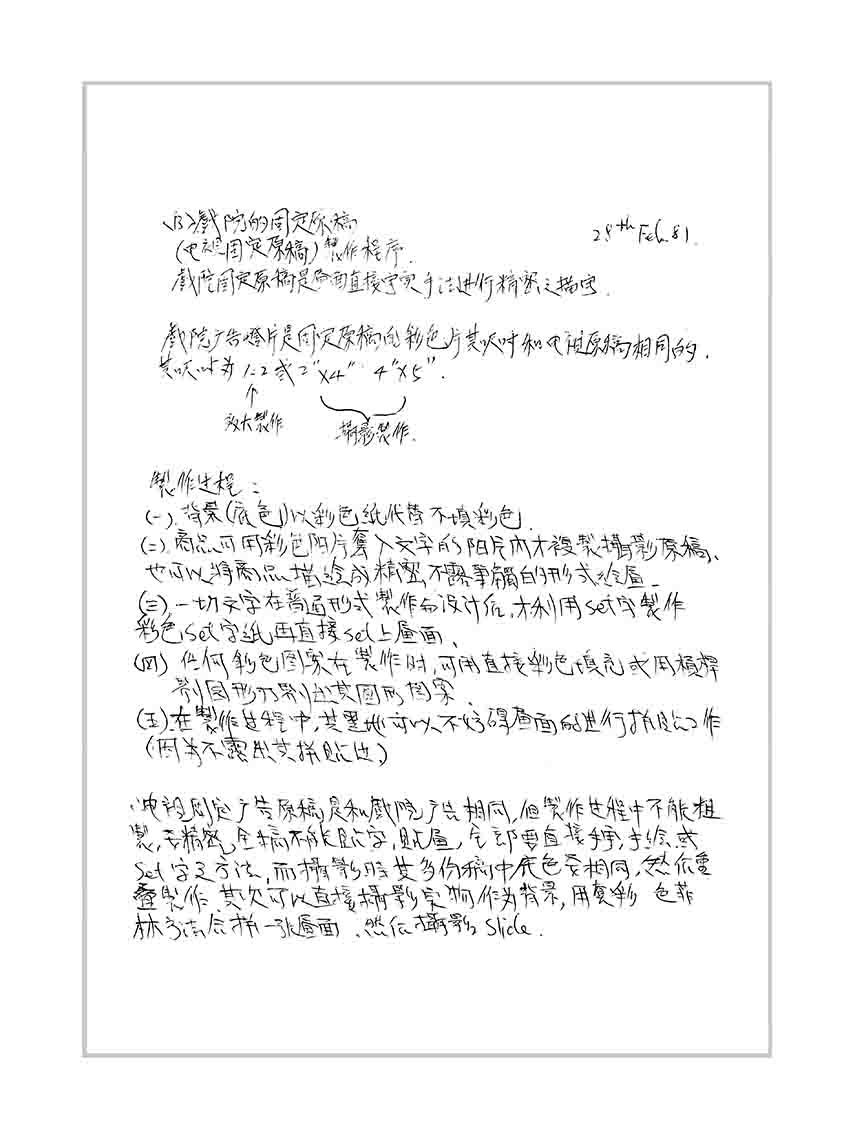 (3)戲院的固定原稿
28th Feb. 81.
(电視固定原稿)製作程序.
戲院固定原稿是畫面直接字实手法進行精密之描字.
戲院广告燈片是固定原稿的彩色片其呎吋和电視原稿相同的.
其呎吋为 1=2 或 2"×4" 4"×5".
↑
放大製作
攝影製作.
製作过程:
(一).背景(底色)以彩色紙代替不填彩色.
(二).商品可用彩色阳片奪入文字的阳片內才複製攝影原稿、
也可以将商品描绘成精密、不露筆觸的形式绘畫.
(三).一切文字在普通形式製作与设计后,才利用set字製作
彩色set字紙再直接set上畫面、
(四) 任何彩色图案在製作时,可用直接彩色填充或用模桿
割圆形刀割出其圆形图案、
(五).在製作过程中,其墨地可以不妨碍畫面的進行拼貼工作
(因为不露出其拼貼边.)
电視固定广告原稿是和戲院广告相同,但製作过程中不能粗
製,要精密,全稿不能貼字,貼畫,全部要直接手手绘或
Set字之方法,而攝影时其多份稿中底色要相同,然后重
疊製作.其次可以直接攝影实物作为背景,用真彩 色菲
林方法合拼一张畫面、然后攝影 Slide.